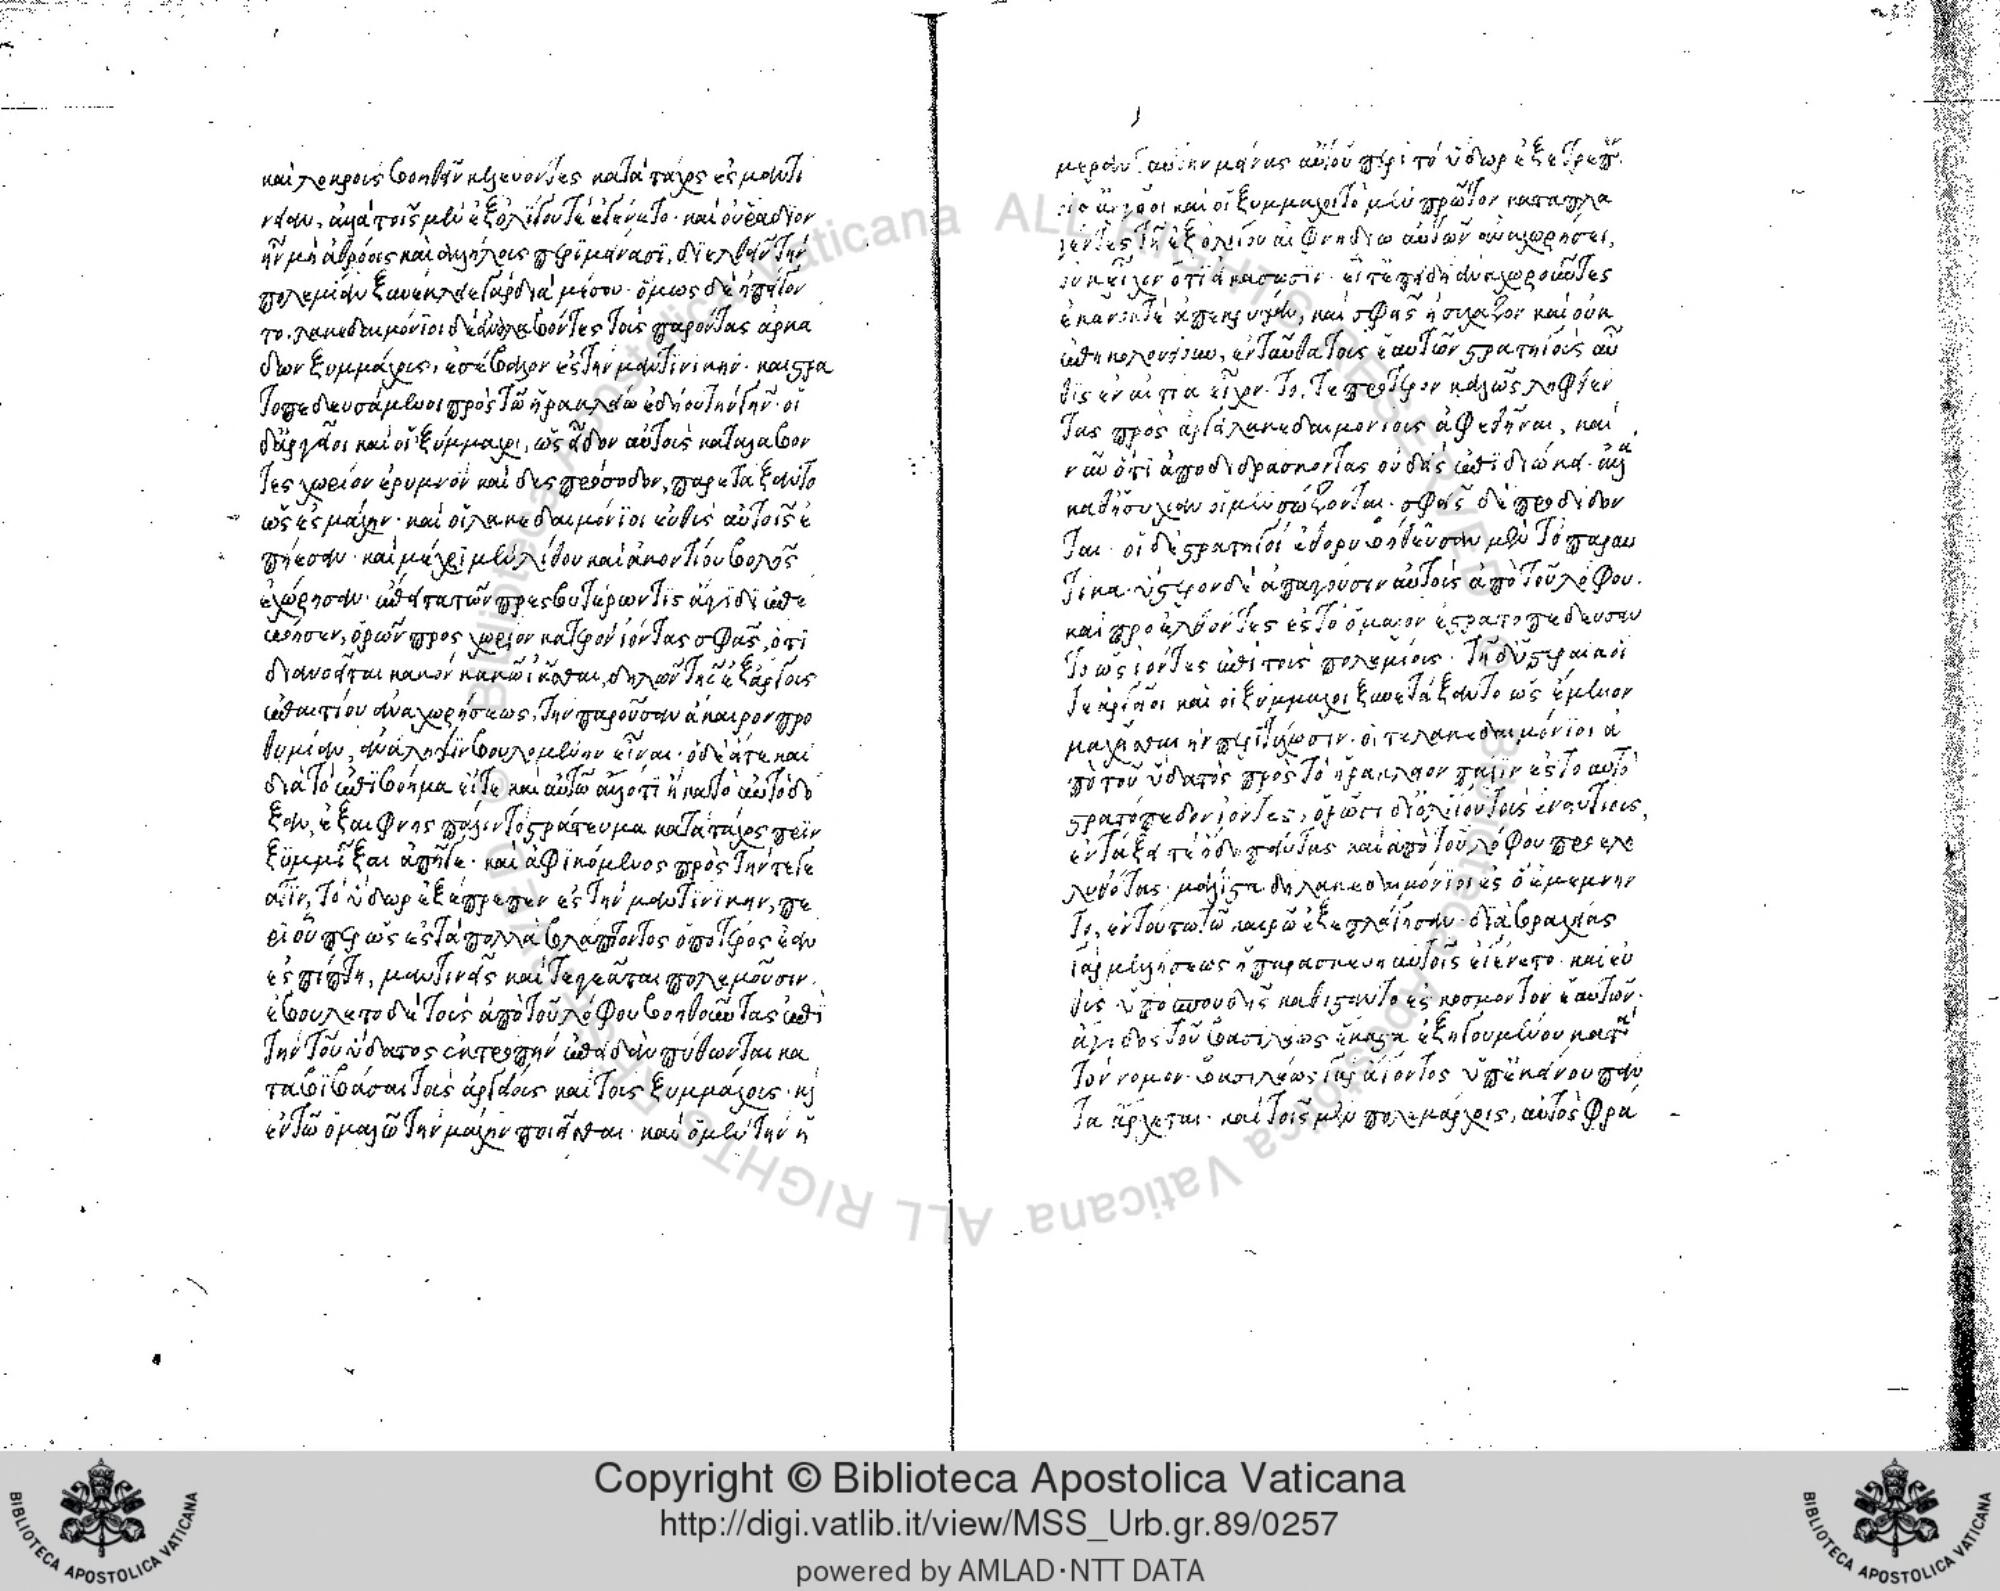 καὶ λοκροὺς βοηθεῖν κελεύοντες κατὰ τάχος ἐς μαντί
νειαν, ἀλλὰ τοῖς μὲν ἐξ ὀλίγου τε ἐγένετο· καὶ οὐ ῥάδιον
ἦν μὴ ἀθρόοις καὶ ἀλλήλοις περιμείνασι, διελθεῖν τὴν
πολεμίαν ξυνέκλειε γὰρ διὰ μέσου· ὅμως δὲ ἠπείγον
το. λακεδαιμόνιοι δὲ ἀναλαβόντες τοὺς παρόντας ἀρκά
δων ξυμμάχους, ἐσέβαλον ἐς τὴν μαντινικήν· καὶ στρα
τοπεδευσάμενοι πρὸς τῶ ἡρακλείω ἐδήουν τὴν γῆν· οἱ
δ' ἀργεῖοι καὶ οἱ ξύμμαχοι, ὡς εἶδον αὐτοὺς καταλαβόν
τες χωρίον ἐρυμνὸν καὶ δυσπρόσοδον, παρετάξαντο
ὡς ἐς μάχην· καὶ οἱ λακεδαιμόνιοι εὐθὺς αὐτοῖς ἐ
πήεσαν· καὶ μέχρι μὲν λίθου καὶ ἀκοντίου βολῆς
ἐχώρησαν· ἔπειτα τῶν πρεσβυτέρων τὶς ἄγιδι ἐπε
βόησεν, ὁρῶν πρὸς χωρίον καρτερὸν ἰόντας σφᾶς, ὅτι
διανοεῖται κακὸν κακῶ ἰᾶσθαι, δηλῶν τῆς ἐξ ἄργους
ἐπαιτίου ἀναχωρήσεως, τὴν παροῦσαν ἄκαιρον προ
θυμίαν, ἀνάληψιν βουλομένην εἶναι· ὁ δὲ εἴτε καὶ
διὰ τὸ ἐπιβόημα εἴτε καὶ αὐτῶ ἄλλο τι ἢ κατὰ τὸ αὐτὸ δό
ξαν, ἐξαίφνης πάλιν τὸ στράτευμα κατὰ τάχος πρὶν
ξυμμῖξαι ἀπῆγε· καὶ ἀφικόμενος πρὸς τὴν τεγε
ᾶτιν, τὸ ὕδωρ ἐξέτρεπεν ἐς τὴν μαντινικὴν, πε
ρὶ οὗπερ ὡς ἐς τὰ πολλὰ βλάπτοντος ὁποτέρως ἐὰν
ἐσπίπτη, μαντινῆς καὶ τεγεᾶται πολεμοῦσιν.
ἐβούλετο δὲ τοὺς ἀπὸ τοῦ λόφου βοηθοῦντας ἐπὶ
τὴν τοῦ ὕδατος ἐκτροπὴν ἐπειδὰν πύθωνται κα
ταβιβάσαι τοὺς ἀργείους καὶ τοὺς ξυμμάχους· καὶ
ἐν τῶ ὁμαλῶ τὴν μάχην ποιεῖσθαι· καὶ ὁ μὲν τὴν ἡ
μέραν ταύτην μείνας αὐτοῦ περὶ τὸ ὕδωρ ἐξέτρεπ.
ἀργεῖοι καὶ οἱ ξύμμαχοι τὸ μὲν πρῶτον καταπλα
γέντες τῆ ἐξ ὀλίγου αἰφνιδίω αὐτῶν ἀναχωρήσει,
οὐκ εἶχον ὅτι εἰκάσωσιν· εἶτ' ἐπειδὴ ἀναχωροῦντες
ἐκεῖνοί τε ἀπέκρυψαν, καὶ σφεῖς ἡσύχαζον καὶ οὐκ
ἐπηκολούθουν, ἐνταῦθα τοὺς ἑαυτῶν στρατηγοὺς αὖ
θις ἐν αἰτία εἶχον· τό, τε πρότερον καλῶς ληφθέν
τας πρὸς ἄργει λακεδαιμονίους ἀφεθῆναι, καὶ
νῦν ὅτι ἀποδιδράσκοντας οὐδεὶς ἐπιδιώκει· ἀλλὰ
καθ' ἡσυχίαν οἱ μὲν σώζονται· σφεῖς δὲ προδίδον
ται· οἱ δὲ στρατηγοὶ ἐθορυβήθησαν μὲν τὸ παραυ
τίκα· ὕστερον δὲ ἀπάγουσιν αὐτοὺς ἀπὸ τοῦ λόφου.
καὶ προελθόντες ἐς τὸ ὁμαλὸν ἐστρατοπεδεύσαν
το ὡς ἰόντες ἐπὶ τοὺς πολεμίους· τῆ δ' ὑστεραία οἵ
τε ἀργεῖοι καὶ οἱ ξύμμαχοι ξυνετάξαντο ὡς ἔμελλον
μαχεῖσθαι ἢν περιτύχωσιν· οἵ τε λακεδαιμόνιοι ἀ
πὸ τοῦ ὕδατος πρὸς τὸ ἡράκλειον πάλιν ἐς τὸ αὐτὸ
στρατόπεδον ἰόντες, ὁρῶσι δι' ὀλίγου τοὺς ἐναντίους,
ἐν τάξει τε ἤδη πάντας καὶ ἀπὸ τοῦ λόφου προελη
λυθότας· μάλιστα δὴ λακεδαιμόνιοι ἐς ὃ ἐμέμνην
το, ἐν τούτω τῶ καιρῶ ἐξεπλάγησαν· διὰ βραχείας
γὰρ μελλήσεως ἡ παρασκευὴ αὐτοῖς ἐγίγνετο· καὶ εὐ
θὺς ὑπὸ σπουδῆς καθίσταντο ἐς κόσμον τὸν ἑαυτῶν·
ἄγιδος τοῦ βασιλέως ἕκαστα ἐξηγουμένου κατὰ
τὸν νόμον· βασιλέως γὰρ ἄγοντος ὑπ' ἐκείνου πάν
τα ἄρχεται· καὶ τοῖς μὲν πολεμάρχοις, αὐτὸς φρά
Copyright © Biblioteca Apostolica Vaticana
http://digi.vatlib.it/view/MSS_Urb.gr.89/0257
powered by AMLAD·NTT DATA
BIBLIOTECA APOSTOLICA VATICANA
BIBLIOTECA APOSTOLICA VATICANA